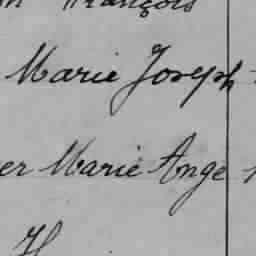 François
Marie Joseph
er Marie Ange